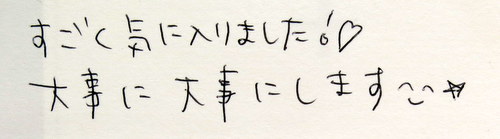 すごく気に入りました!♡
大事に大事にします^^☆